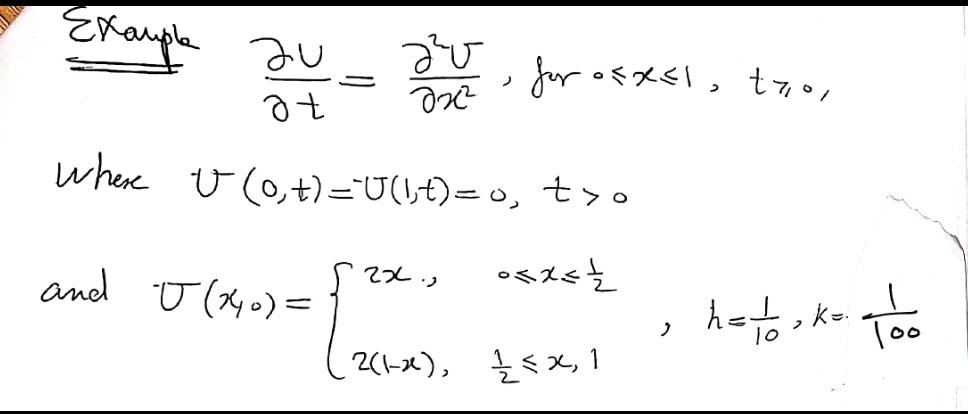 Example ∂U/∂t = ∂²U/∂x², for 0≤x≤1, t≥0,
where U(0,t)=U(1,t)=0, t>0
and U(x,0)= { 2x., 0≤x≤1/2
2(1-x), 1/2≤x, 1 , h=1/10, k=1/100